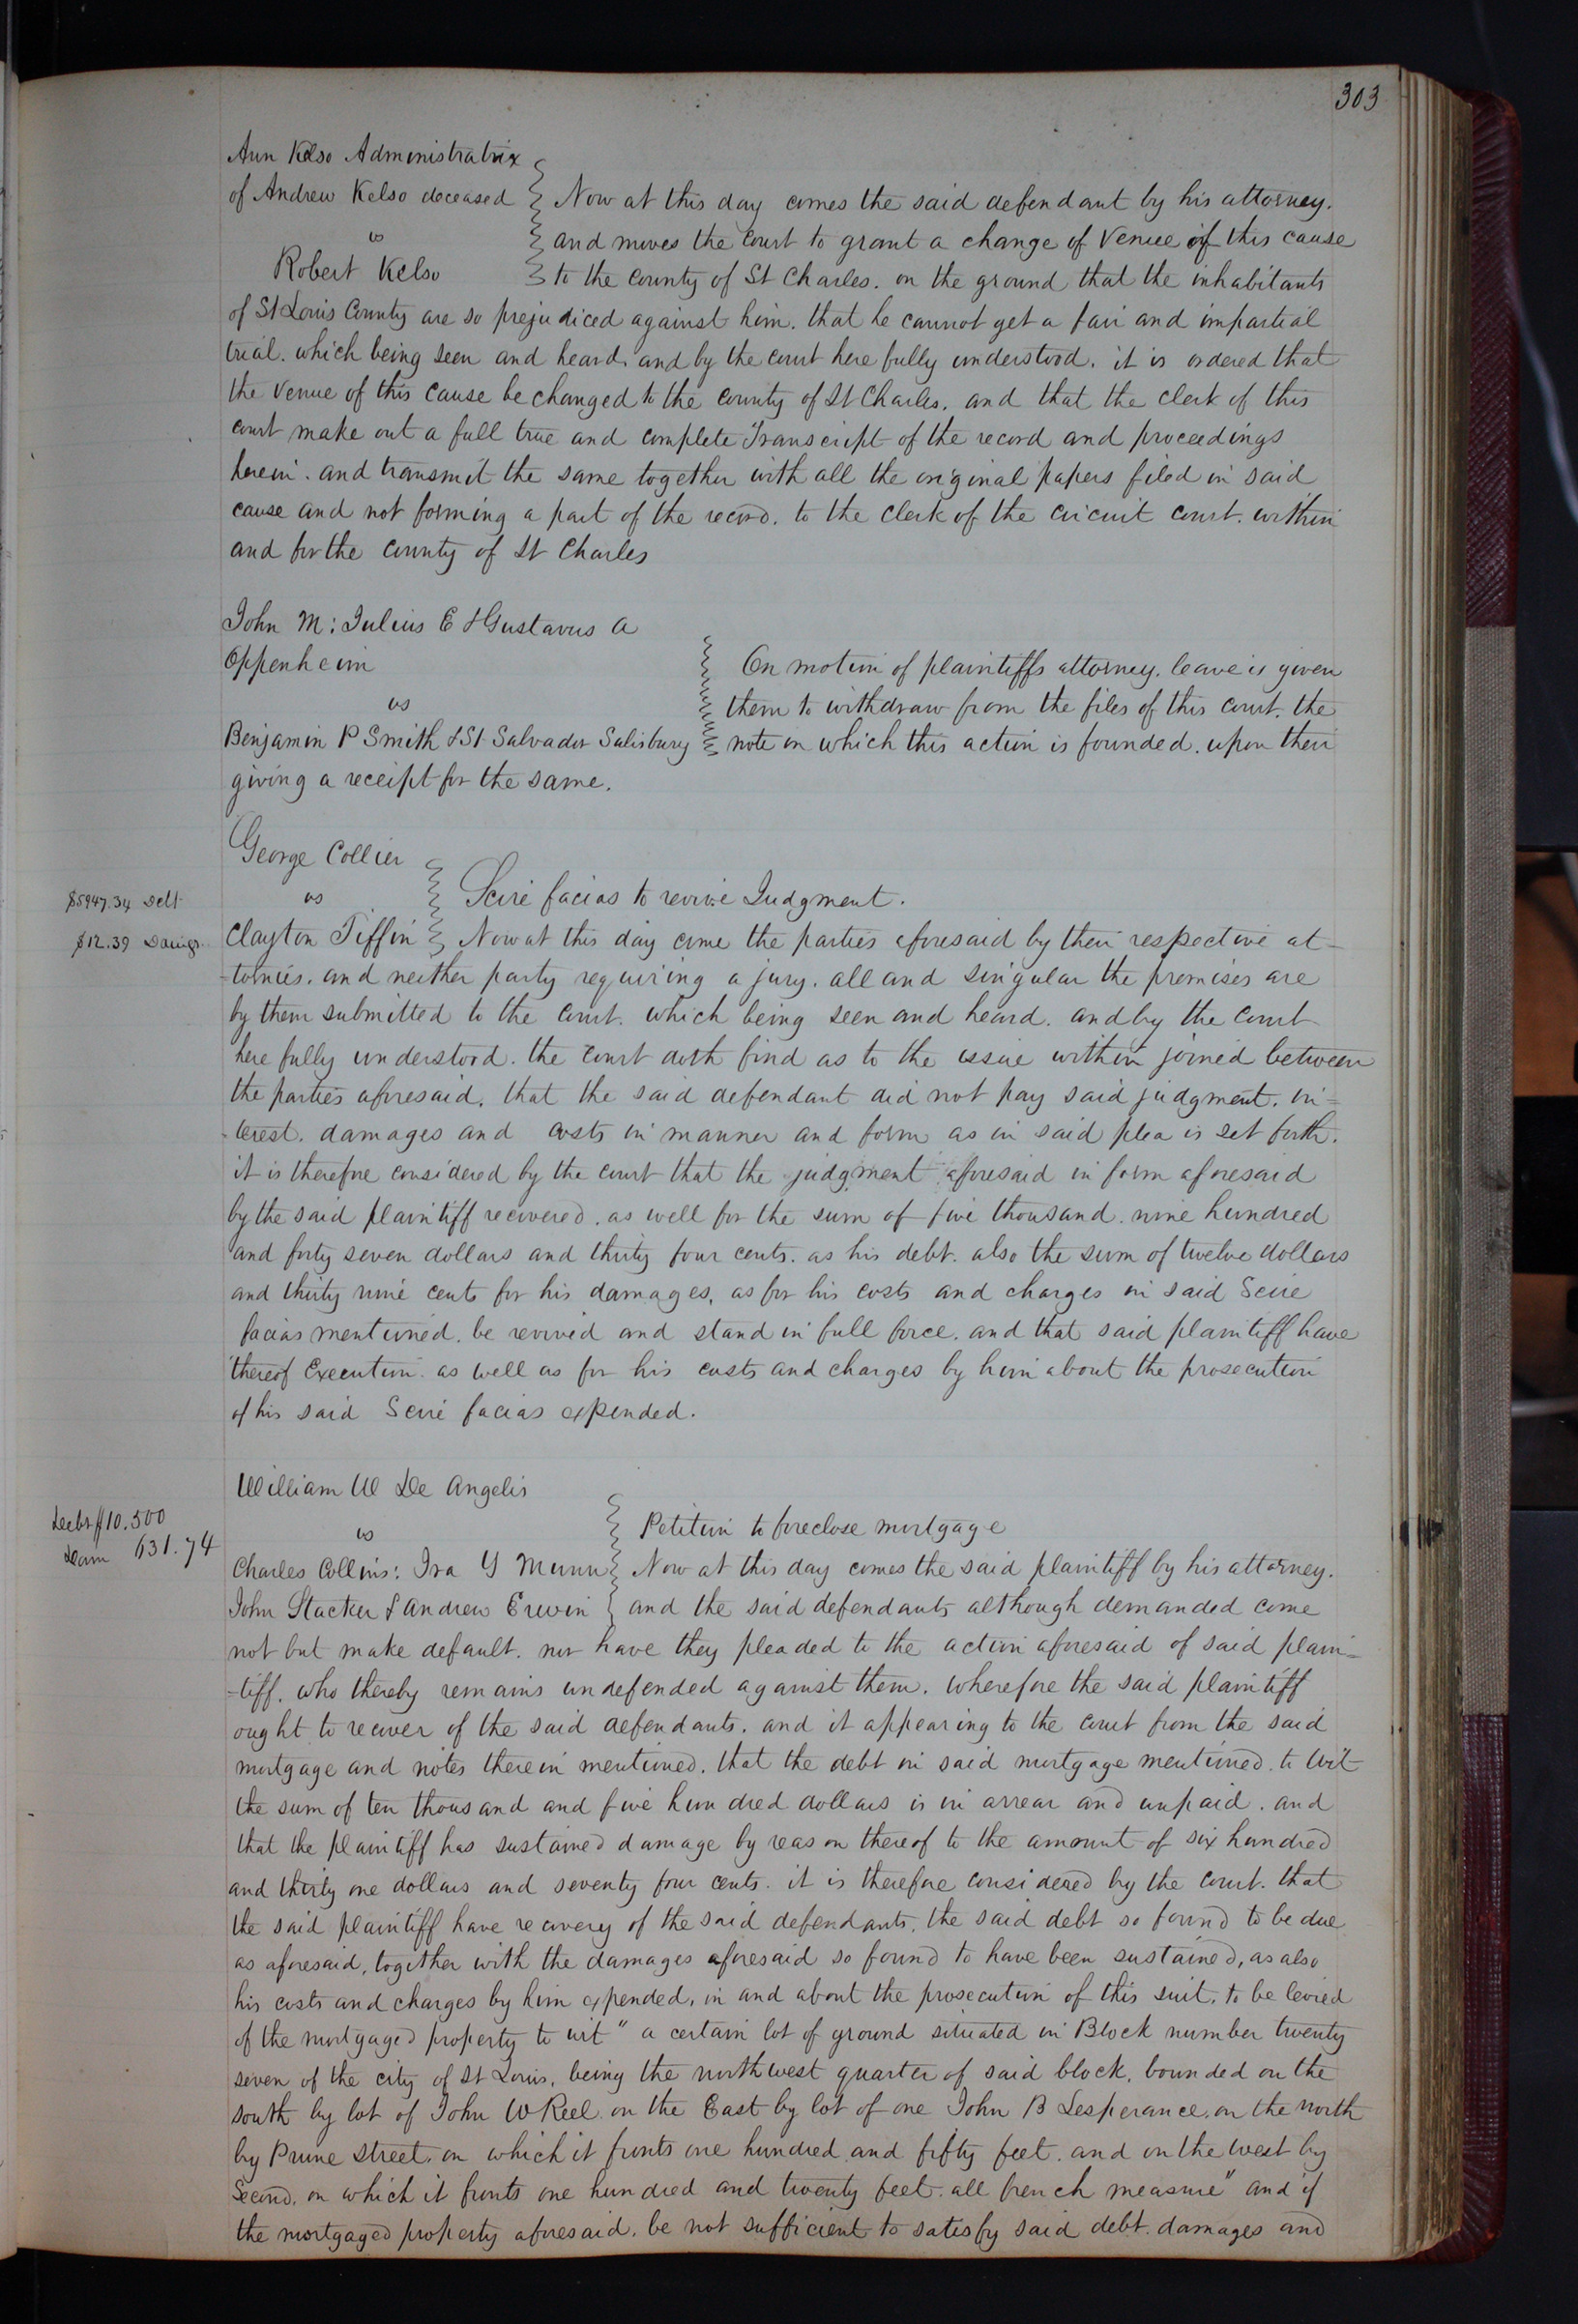 303
Ann Kelso Administratrix
of Andrew Kelso deceased } Now at this day comes the said defendant by his attorney.
vs } and moves the court to grant a change of Venue of this cause
Robert Kelso } to the county of St Charles. on the ground that the inhabitants
of St Louis County are so prejudiced against him. that he cannot get a fair and impartial
trial. which being seen and heard. and by the court here fully understood. it is ordered that
the Venue of this cause be changed to the county of St Charles. and that the clerk of this
court make out a full true and complete Transcript of the record and proceedings
herein. and transmit the same together with all the original papers filed in said
cause and not forming a part of the record. to the clerk of the circuit court. within
and for the county of St Charles
John M: Julius E & Gustavus A
Oppenheim } On motion of plaintiffs attorney. leave is given
vs } them to withdraw from the files of this court. the
Benjamin P Smith & St Salvador Salisbury } note on which this action is founded. upon their
giving a receipt for the same.
George Collier
$5947.34 Debt vs } Scire facias to revive Judgment.
$12.39 Damgs. Clayton Tiffin } Now at this day come the parties aforesaid by their respective at-
-tornies. and neither party requiring a jury. all and singular the premises are
by them submitted to the court. which being seen and heard. and by the court
here fully understood. the court doth find as to the issue within joined between
the parties aforesaid. that the said defendant did not pay said judgment. in-
-terest. damages and costs in manner and form as in said plea is set forth.
it is therefore considered by the court that the judgment aforesaid in form aforesaid
by the said plaintiff recovered. as well for the sum of five thousand. nine hundred
and forty seven dollars and thirty four cents. as his debt. also the sum of twelve dollars
and thirty nine cents for his damages, as for his costs and charges in said Scire
facias mentioned. be revived and stand in full force. and that said plaintiff have
thereof Execution. as well as for his costs and charges by him about the prosecution
of his said Scire facias expended.
William W De Angelis
Debt $10.500 vs } Petition to foreclose mortgage
Dam 631.74 Charles Collins: Ira Y Munn } Now at this day comes the said plaintiff by his attorney.
John Stacker & Andrew Erwin } and the said defendants although demanded come
not but make default. nor have they pleaded to the action aforesaid of said plain-
-tiff. who thereby remains undefended against them. Wherefore the said plaintiff
ought to recover of the said defendants. and it appearing to the court from the said
mortgage and notes therein mentioned. that the debt in said mortgage mentioned. to wit
the sum of ten thousand and five hundred dollars is in arrear and unpaid. and
that the plaintiff has sustained damage by reason thereof to the amount of six hundred
and thirty one dollars and seventy four cents. it is therefore considered by the court. that
the said plaintiff have recovery of the said defendants. the said debt so found to be due
as aforesaid, together with the damages aforesaid so found to have been sustained, as also
his costs and charges by him expended, in and about the prosecution of this suit. to be levied
of the mortgaged property to wit " a certain lot of ground situated in Block number twenty
seven of the city of St Louis, being the northwest quarter of said block, bounded on the
south by lot of John W Reel. on the East by lot of one John B Lesperance. on the north
by Prune Street. on which it fronts one hundred and fifty feet. and on the west by
Second. on which it fronts one hundred and twenty feet. all french measure" and if
the mortgaged property aforesaid. be not sufficient to satisfy said debt. damages and